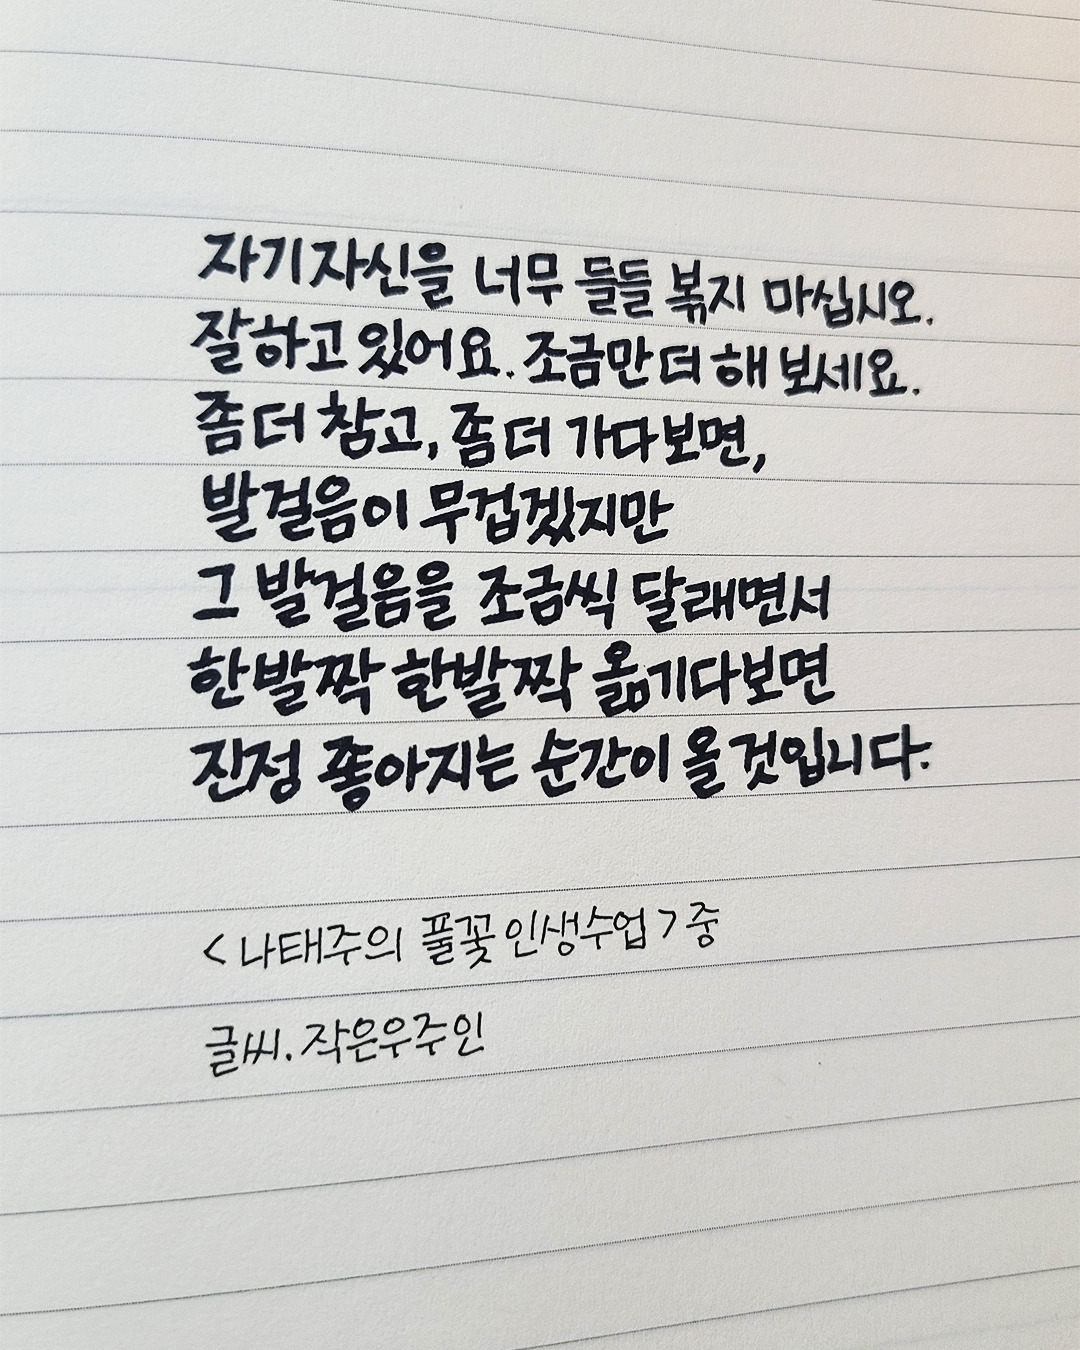 자기 자신을 너무 들들 볶지 마십시오.
잘하고 있어요. 조금만 더 해 보세요.
좀 더 참고, 좀 더 가다보면,
발걸음이 무겁겠지만
그 발걸음을 조금씩 달래면서
한발짝 한발짝 옮기다보면
진정 좋아지는 순간이 올 것입니다.
<나태주의 풀꽃 인생수업> 중
글씨. 작은우주인